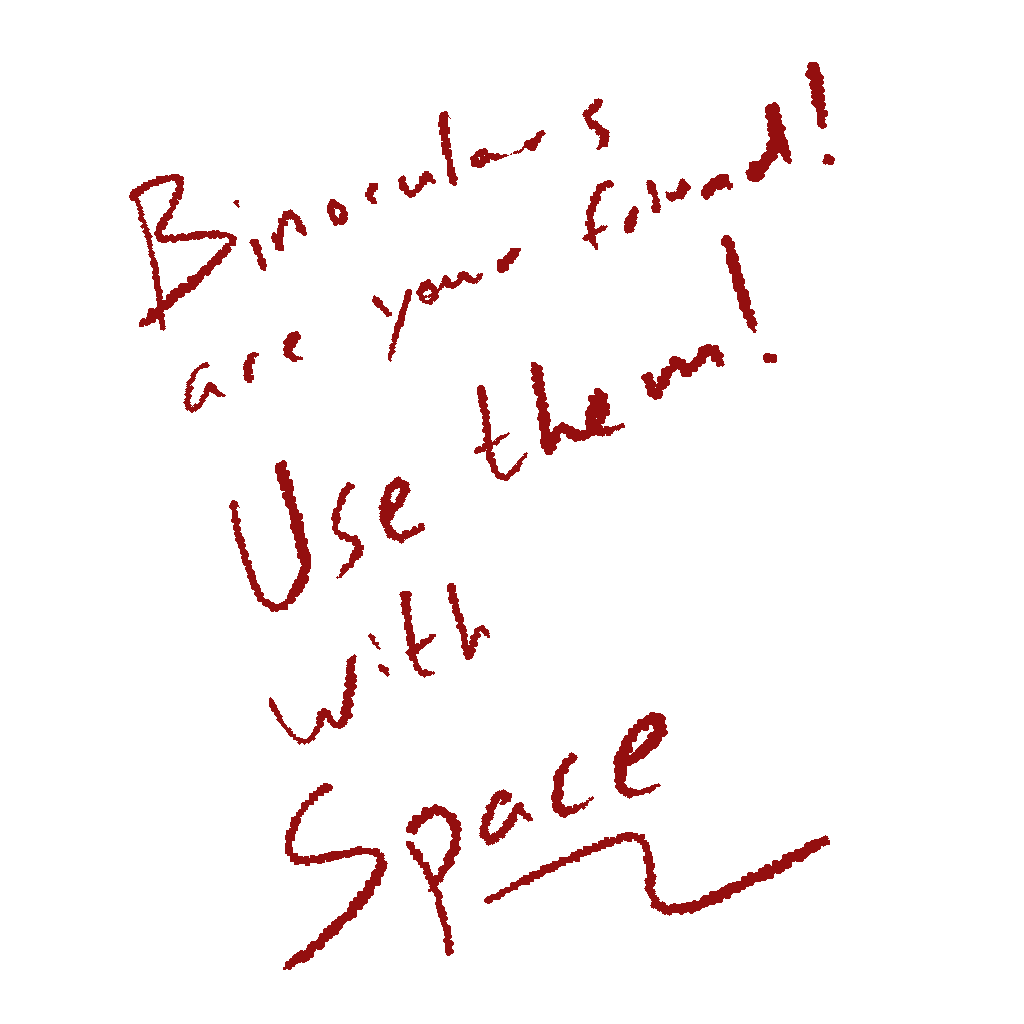 Binoculars
are your friend!
Use them!
with
Space